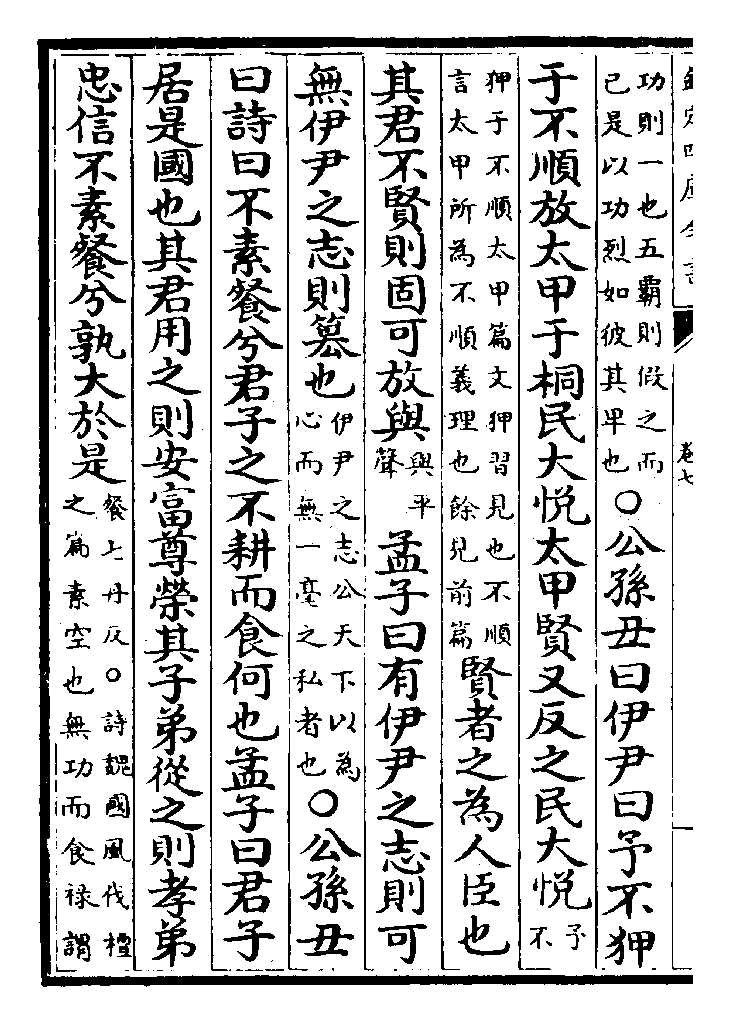 欽定四庫全書
卷七
功則一也五霸則假之而
已是以功烈如彼其卑也
○公孫丑曰伊尹曰予不狎
于不順放太甲于桐民大悦太甲賢又反之民大悦
予
不
狎于不順太甲篇文狎習見也不順
言太甲所為不順義理也餘見前篇
賢者之為人臣也
其君不賢則固可放與
與平
聲
孟子曰有伊尹之志則可
無伊尹之志則簒也
伊尹之志公天下以為
心而無一毫之私者也
○公孫丑
曰詩曰不素餐兮君子之不耕而食何也孟子曰君子
居是國也其君用之則安富尊榮其子弟從之則孝弟
忠信不素餐兮孰大於是
餐七丹反○詩魏國風伐檀
之篇素空也無功而食祿謂